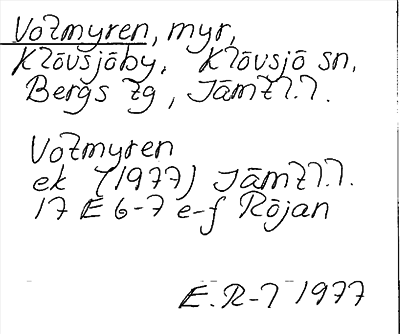 Votmyren, myr,
Klövsjöby, Klövsjö sn,
Bergs tg, Jämtl.l.
Votmyren
ek (1977) Jämtl.l.
17 E 6-7 e-f Röjan
E.R-l 1977